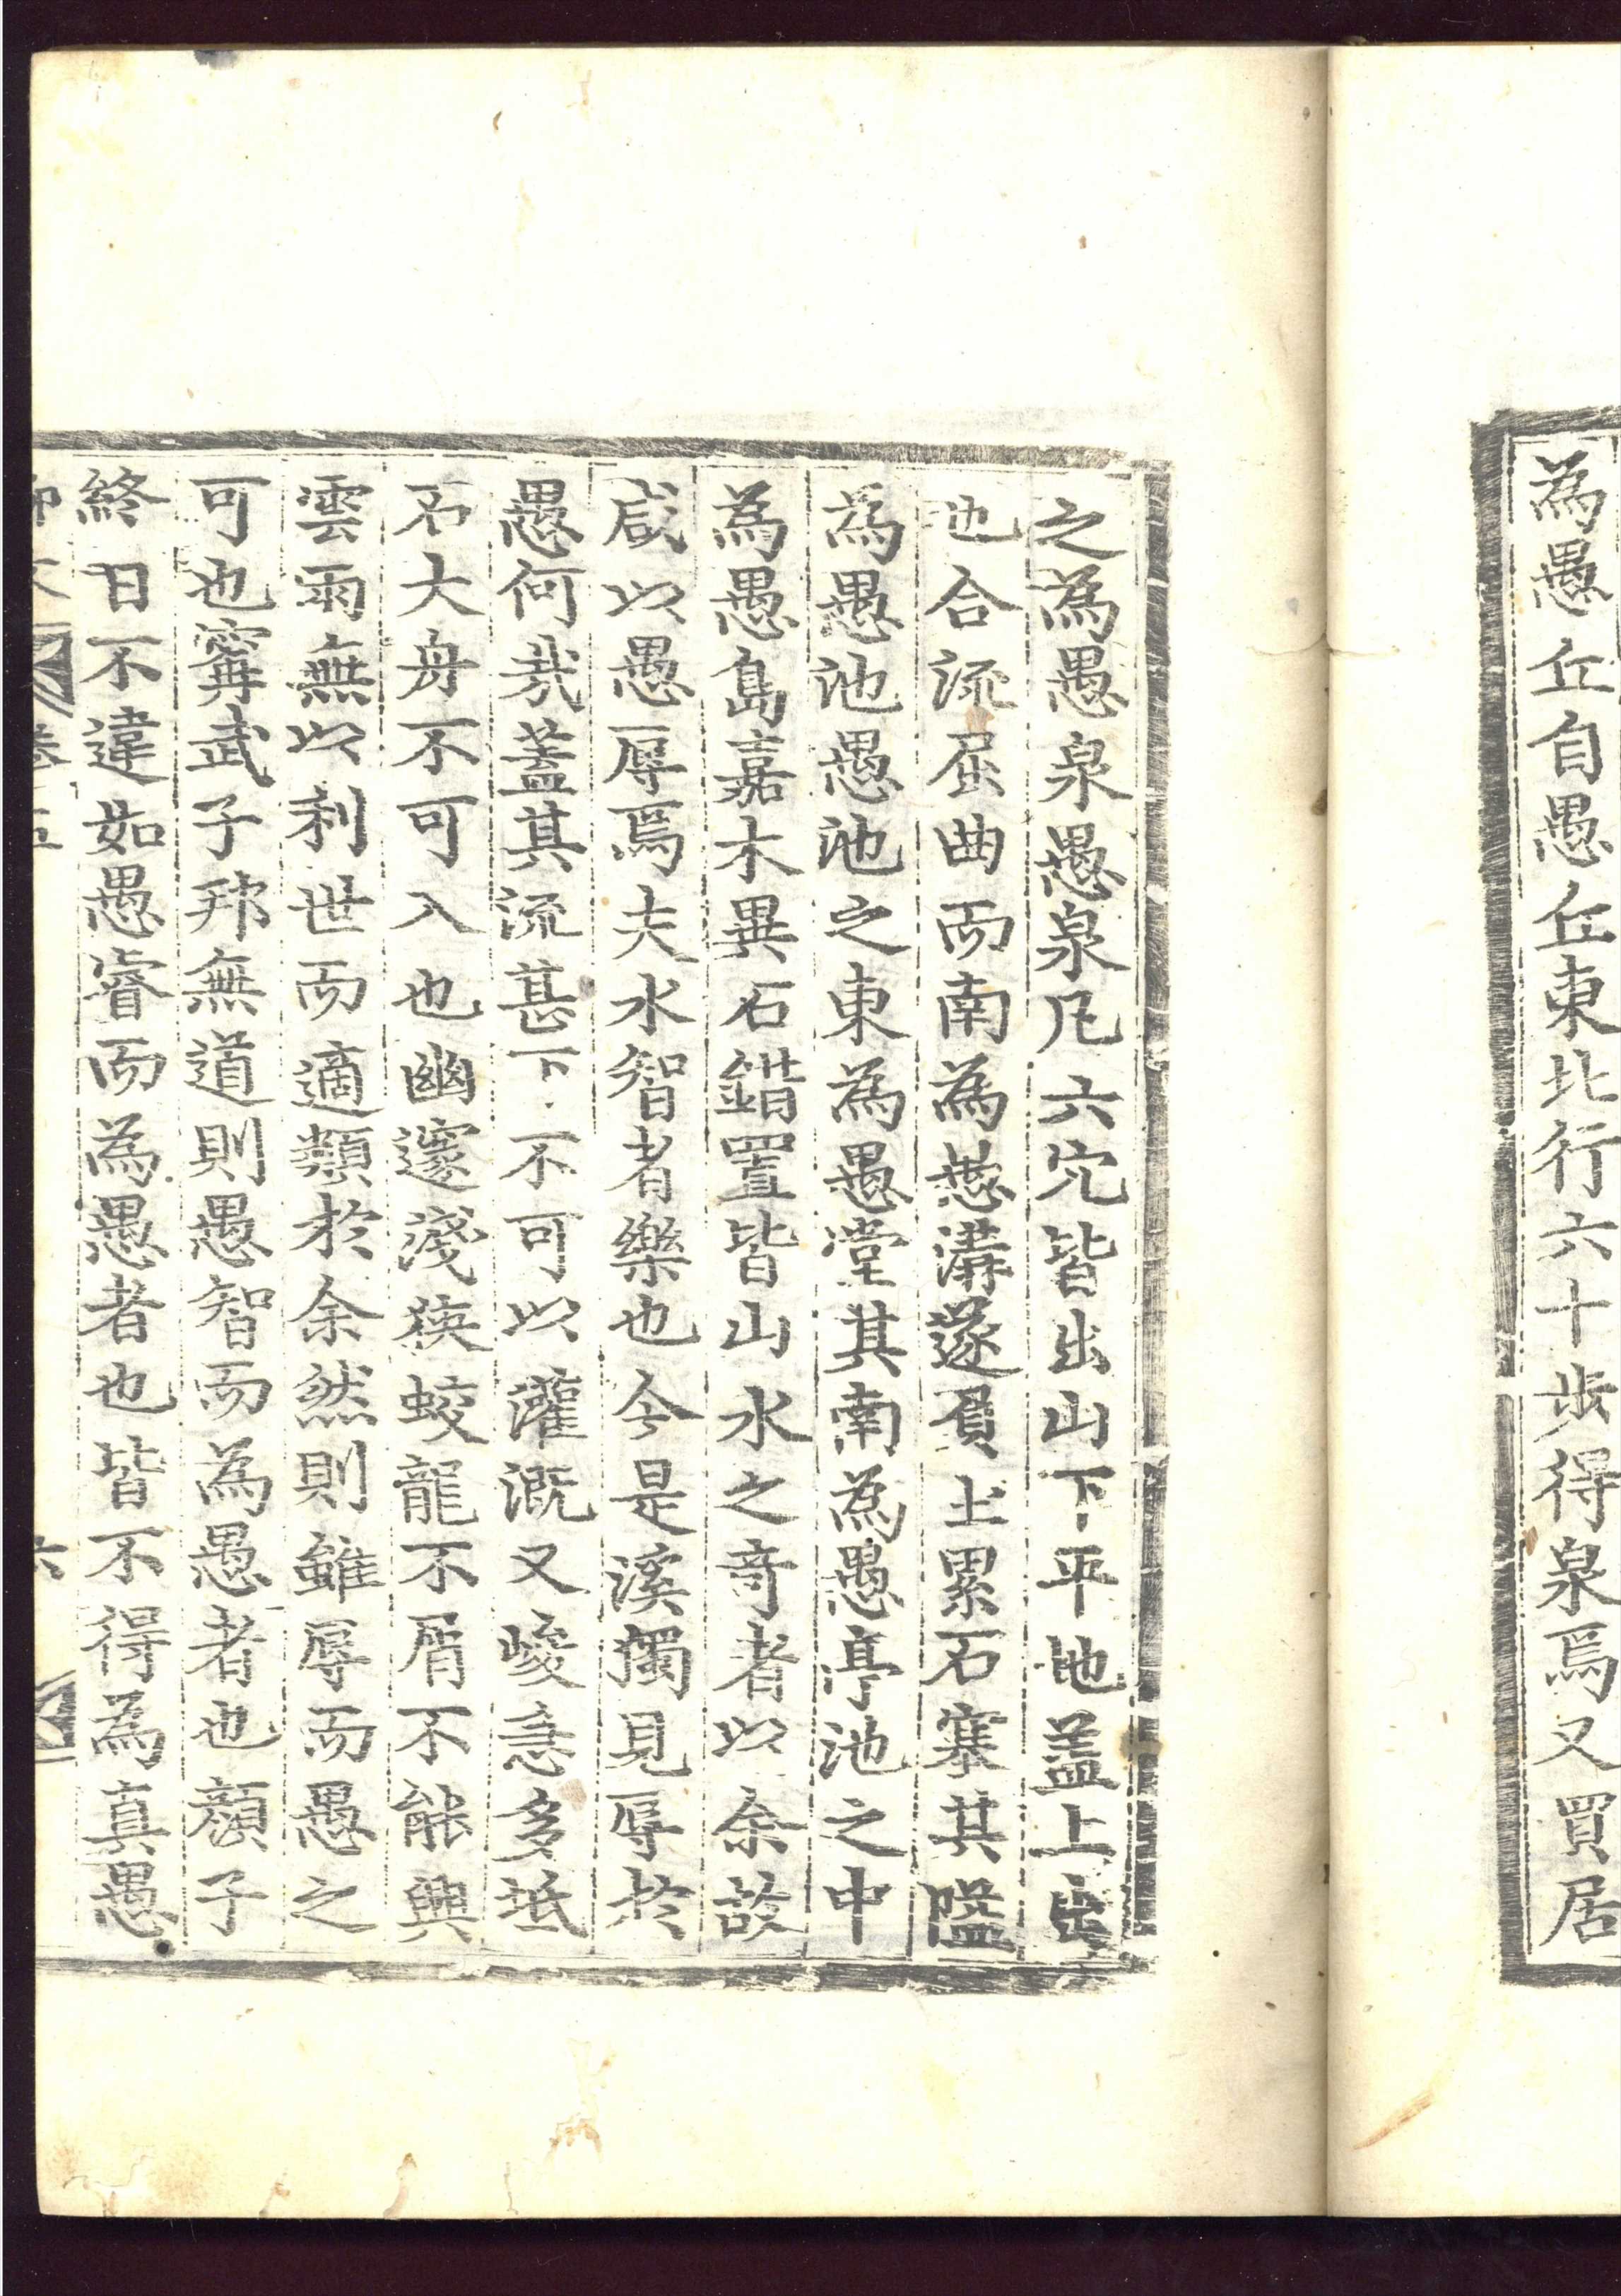 為愚丘自愚丘東北行六十步得泉焉又買居
之為愚泉愚泉凡六穴皆出山下平地盖上出
也合流屈曲而南為愚溝遂負土累石塞其隘
為愚池愚池之東為愚堂其南為愚亭池之中
為愚島嘉木異石錯置皆山水之奇者以余故
咸以愚辱焉夫水智者樂也今是溪獨見辱於
愚何哉蓋其流甚下不可以灌漑又峻急多坻
石大舟不可入也幽邃淺狹蛟龍不屑不能興
雲雨無以利世而適類於余然則雖辱而愚之
可也甯武子邦無道則愚智而為愚者也顔子
終日不違茹愚睿而為愚者也皆不得為真愚
六